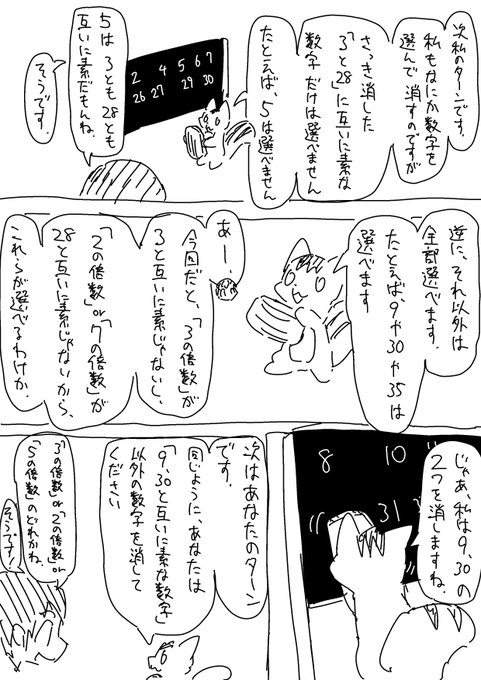 次私のターンです.
私もなにか数字を
選んで 消すのですが
さっき消した
「3と28」に互いに素な
数字だけは選べません
たとえば、5は選べません
2 4 5 6 7
26 27 29 30
5は 3とも 28とも
互いに素だもんね.
そうです.
逆に、それ以外は
全部選べます.
たとえば、9や30や35は
選べます
あー.
今回だと、「3の倍数」が
3と互いに素じゃないし、
「2の倍数」or「7の倍数」が
28と互いに素じゃないから、
これらが選べるわけか.
じゃあ、私は9、30の
2つを消しますね.
8 10
31
次はあなたのターン
です.
同じように、あなたは
「9、30と互いに素な数字」
以外の数字を消して
ください
「3の倍数」or「2の倍数」or
「5の倍数」のどれかね.
そうです!